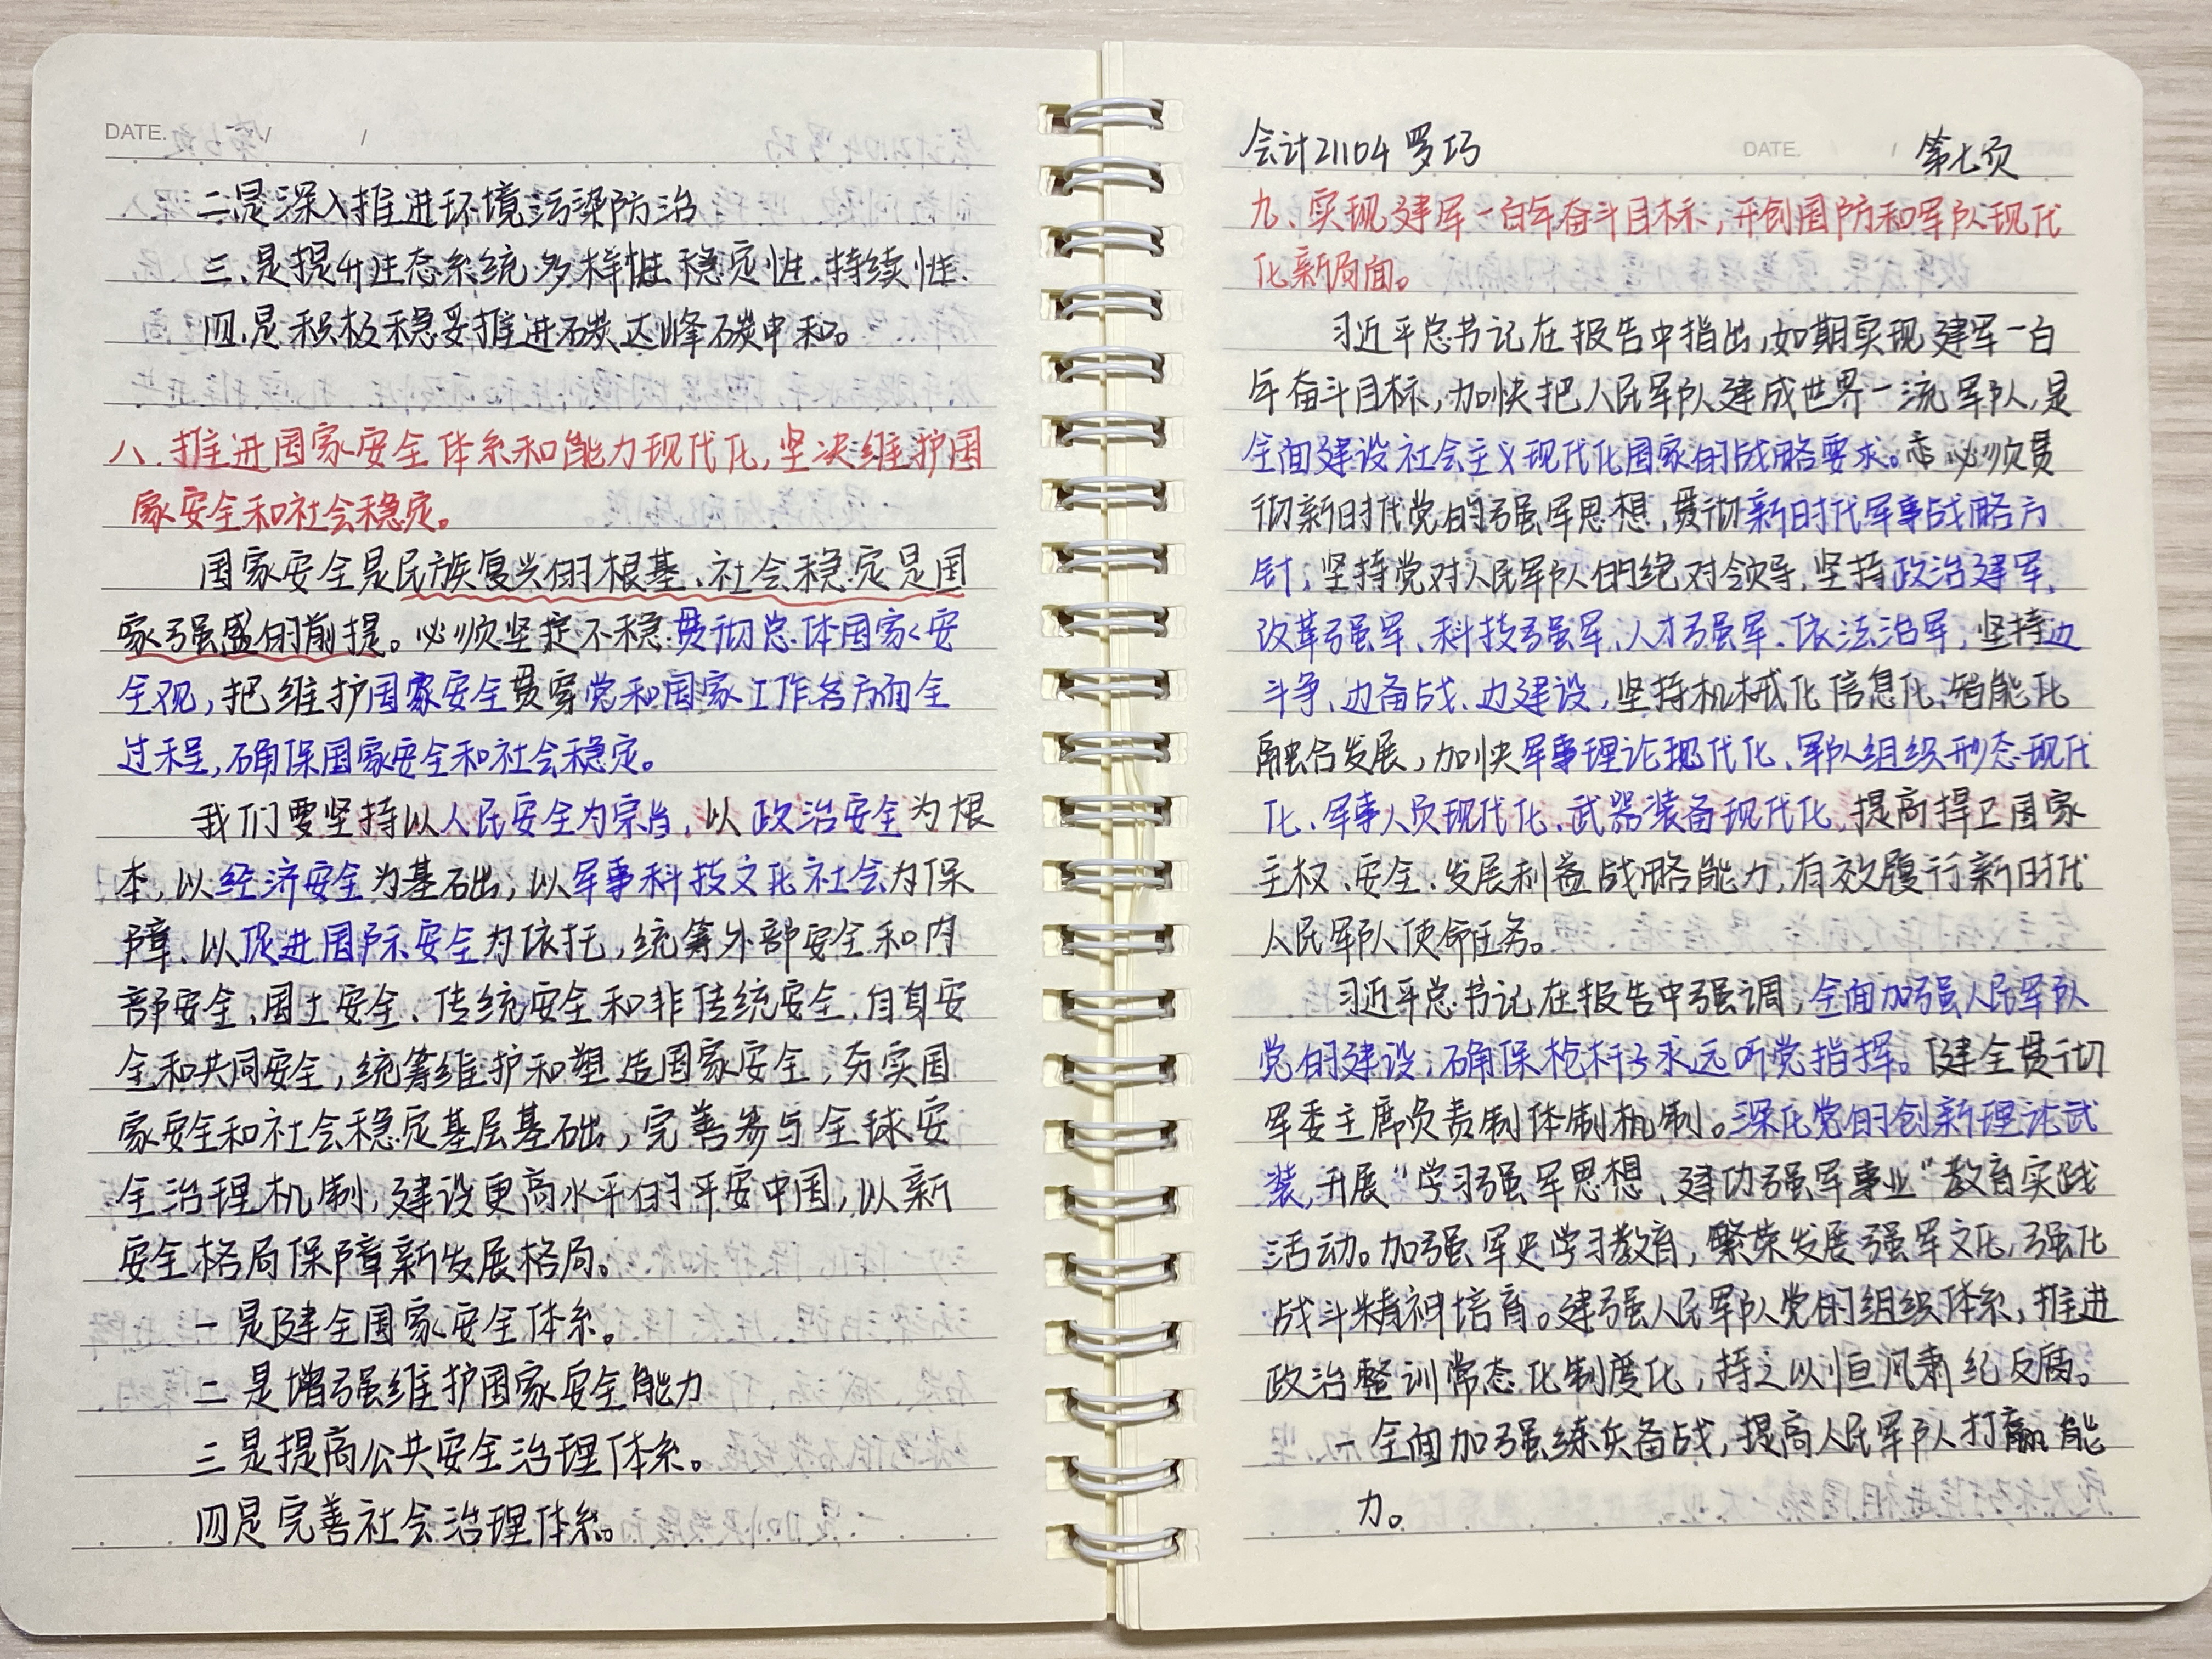 DATE. / /
二是深入推进环境污染防治
三.是提升生态系统多样性.稳定性.持续性.
四.是积极稳妥推进碳达峰碳中和。
八.推进国家安全体系和能力现代化,坚决维护国
家安全和社会稳定。
国家安全是民族复兴的根基、社会稳定是国
家强盛的前提。必须坚定不稳贯彻总体国家安
全观,把维护国家安全贯穿党和国家工作各方面全
过程,确保国家安全和社会稳定。
我们要坚持以人民安全为宗旨,以政治安全为根
本,以经济安全为基础,以军事科技文化社会为保
障、以促进国际安全为依托,统筹外部安全和内
部安全、国土安全、传统安全和非传统安全、自身安
全和共同安全,统筹维护和塑造国家安全,夯实国
家安全和社会稳定基层基础,完善参与全球安
全治理机制,建设更高水平的平安中国,以新
安全格局保障新发展格局。
一是健全国家安全体系。
二是增强维护国家安全能力
三是提高公共安全治理体系。
四是完善社会治理体系。
会计21104 罗巧 DATE. / 第七页
九、实现建军一百年奋斗目标,开创国防和军队现代
化新局面。
习近平总书记在报告中指出,如期实现建军一百
年奋斗目标,加快把人民军队建成世界一流军队,是
全面建设社会主义现代化国家的战略要求。必须贯
彻新时代党的强军思想,贯彻新时代军事战略方
针,坚持党对人民军队的绝对领导,坚持政治建军、
改革强军、科技强军、人才强军、依法治军,坚持边
斗争、边备战、边建设,坚持机械化信息化、智能化
融合发展,加快军事理论现代化、军队组织形态现代
化、军事人员现代化、武器装备现代化,提高捍卫国家
主权、安全、发展利益战略能力,有效履行新时代
人民军队使命任务。
习近平总书记在报告中强调,全面加强人民军队
党的建设,确保枪杆子永远听党指挥。健全贯彻
军委主席负责制体制机制。深化党的创新理论武
装,开展“学习强军思想、建功强军事业”教育实践
活动。加强军史学习教育,繁荣发展强军文化,强化
战斗精神培育。建强人民军队党的组织体系,推进
政治整训常态化制度化,持之以恒风肃纪反腐。
一全面加强练兵备战,提高人民军队打赢能
力。